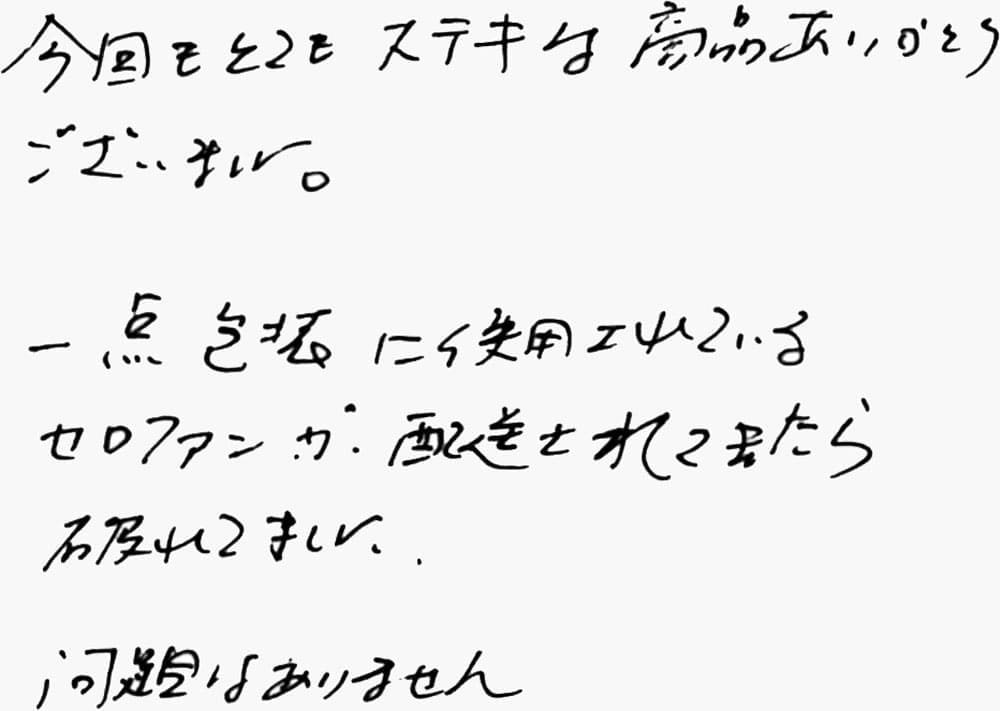 今回もとてもステキな商品ありがとう
ございました。
一点包装に使用されている
セロファンが配送されてきたら
破れてました..
問題はありません